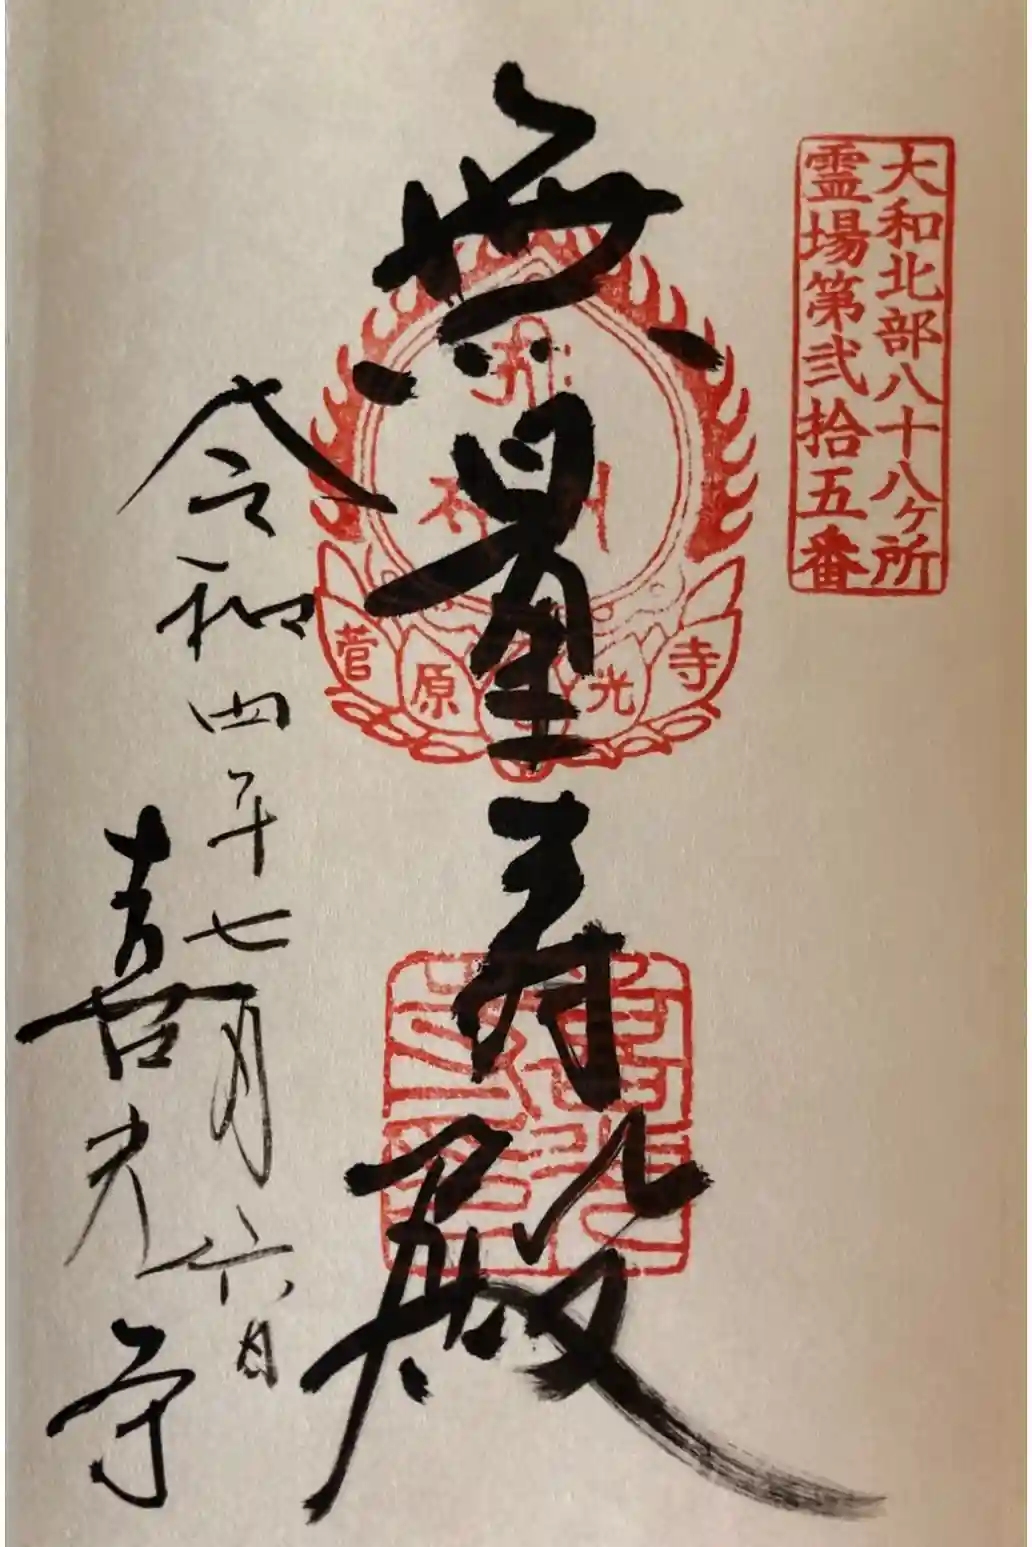 大和北部八十八ヶ所
霊場第弐拾五番
無量寿殿
菅原 光寺
令和四年七月六日
喜光寺